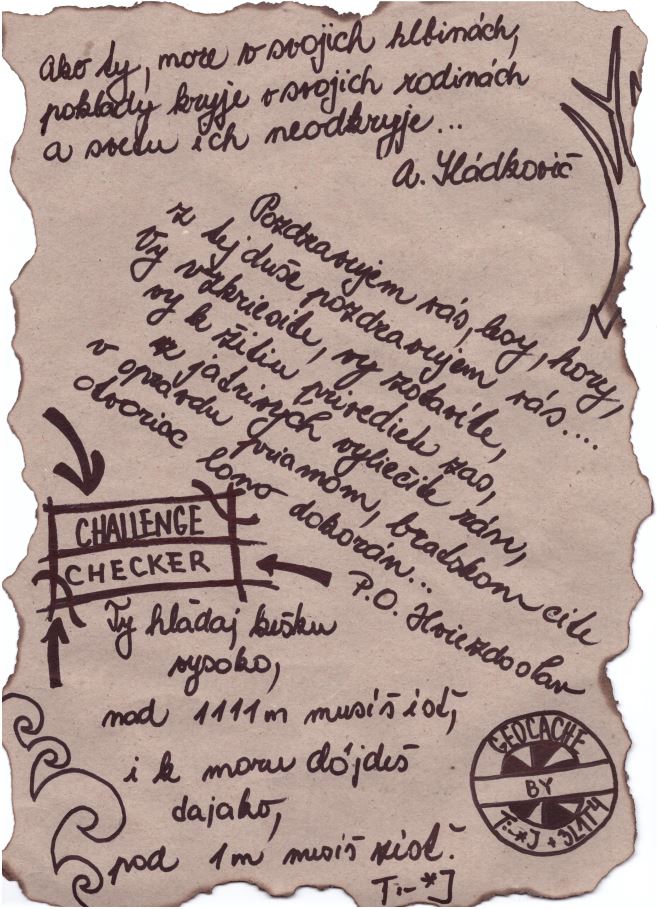 Ako ty, more v svojich hlbinách,
poklady kryje v svojich rodinách
a svetu ich neodkryje...
A. Sládkovič
Pozdravujem vás, lesy, hory,
z tej duše pozdravujem vás....
Vy vzkriesite, vy zotavíte,
vy k žitiu privediete zas,
z jadivých vyliečite rán,
v opravdu priamom, bratskom cite
otvoriac lono dokorán...
P.O. Hviezdoslav
CHALLENGE
CHECKER
Ty hľadaj kešku
vysoko,
nad 1111m musíš ísť,
i k moru dôjdeš
dajako,
pod 1m musíš zísť.
T:-*J
GEOCACHE
BY
T:-*J +